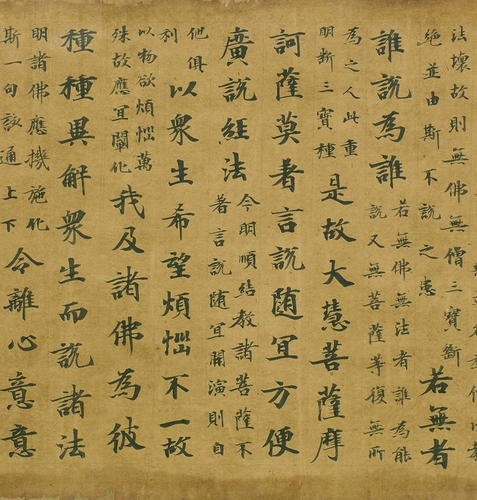 法壞故則無佛無僧三寶斷
絕並由斯不說之患
若無者
誰說為誰
若無佛無法者誰為能
說又無菩薩等復無所
為之人此重
明斷三寶種
是故大慧菩薩摩
訶薩莫著言說随宜方便
廣說經法
今明順結教諸菩薩不
著言說随宜開演則自
他俱
利
以眾生希望煩惱不一故
以物欲煩惱萬
殊故應宜闡化
我及諸佛為彼
種種異解眾生而說諸法
明諸佛應機施化
斯一句該通上下
令離心意意